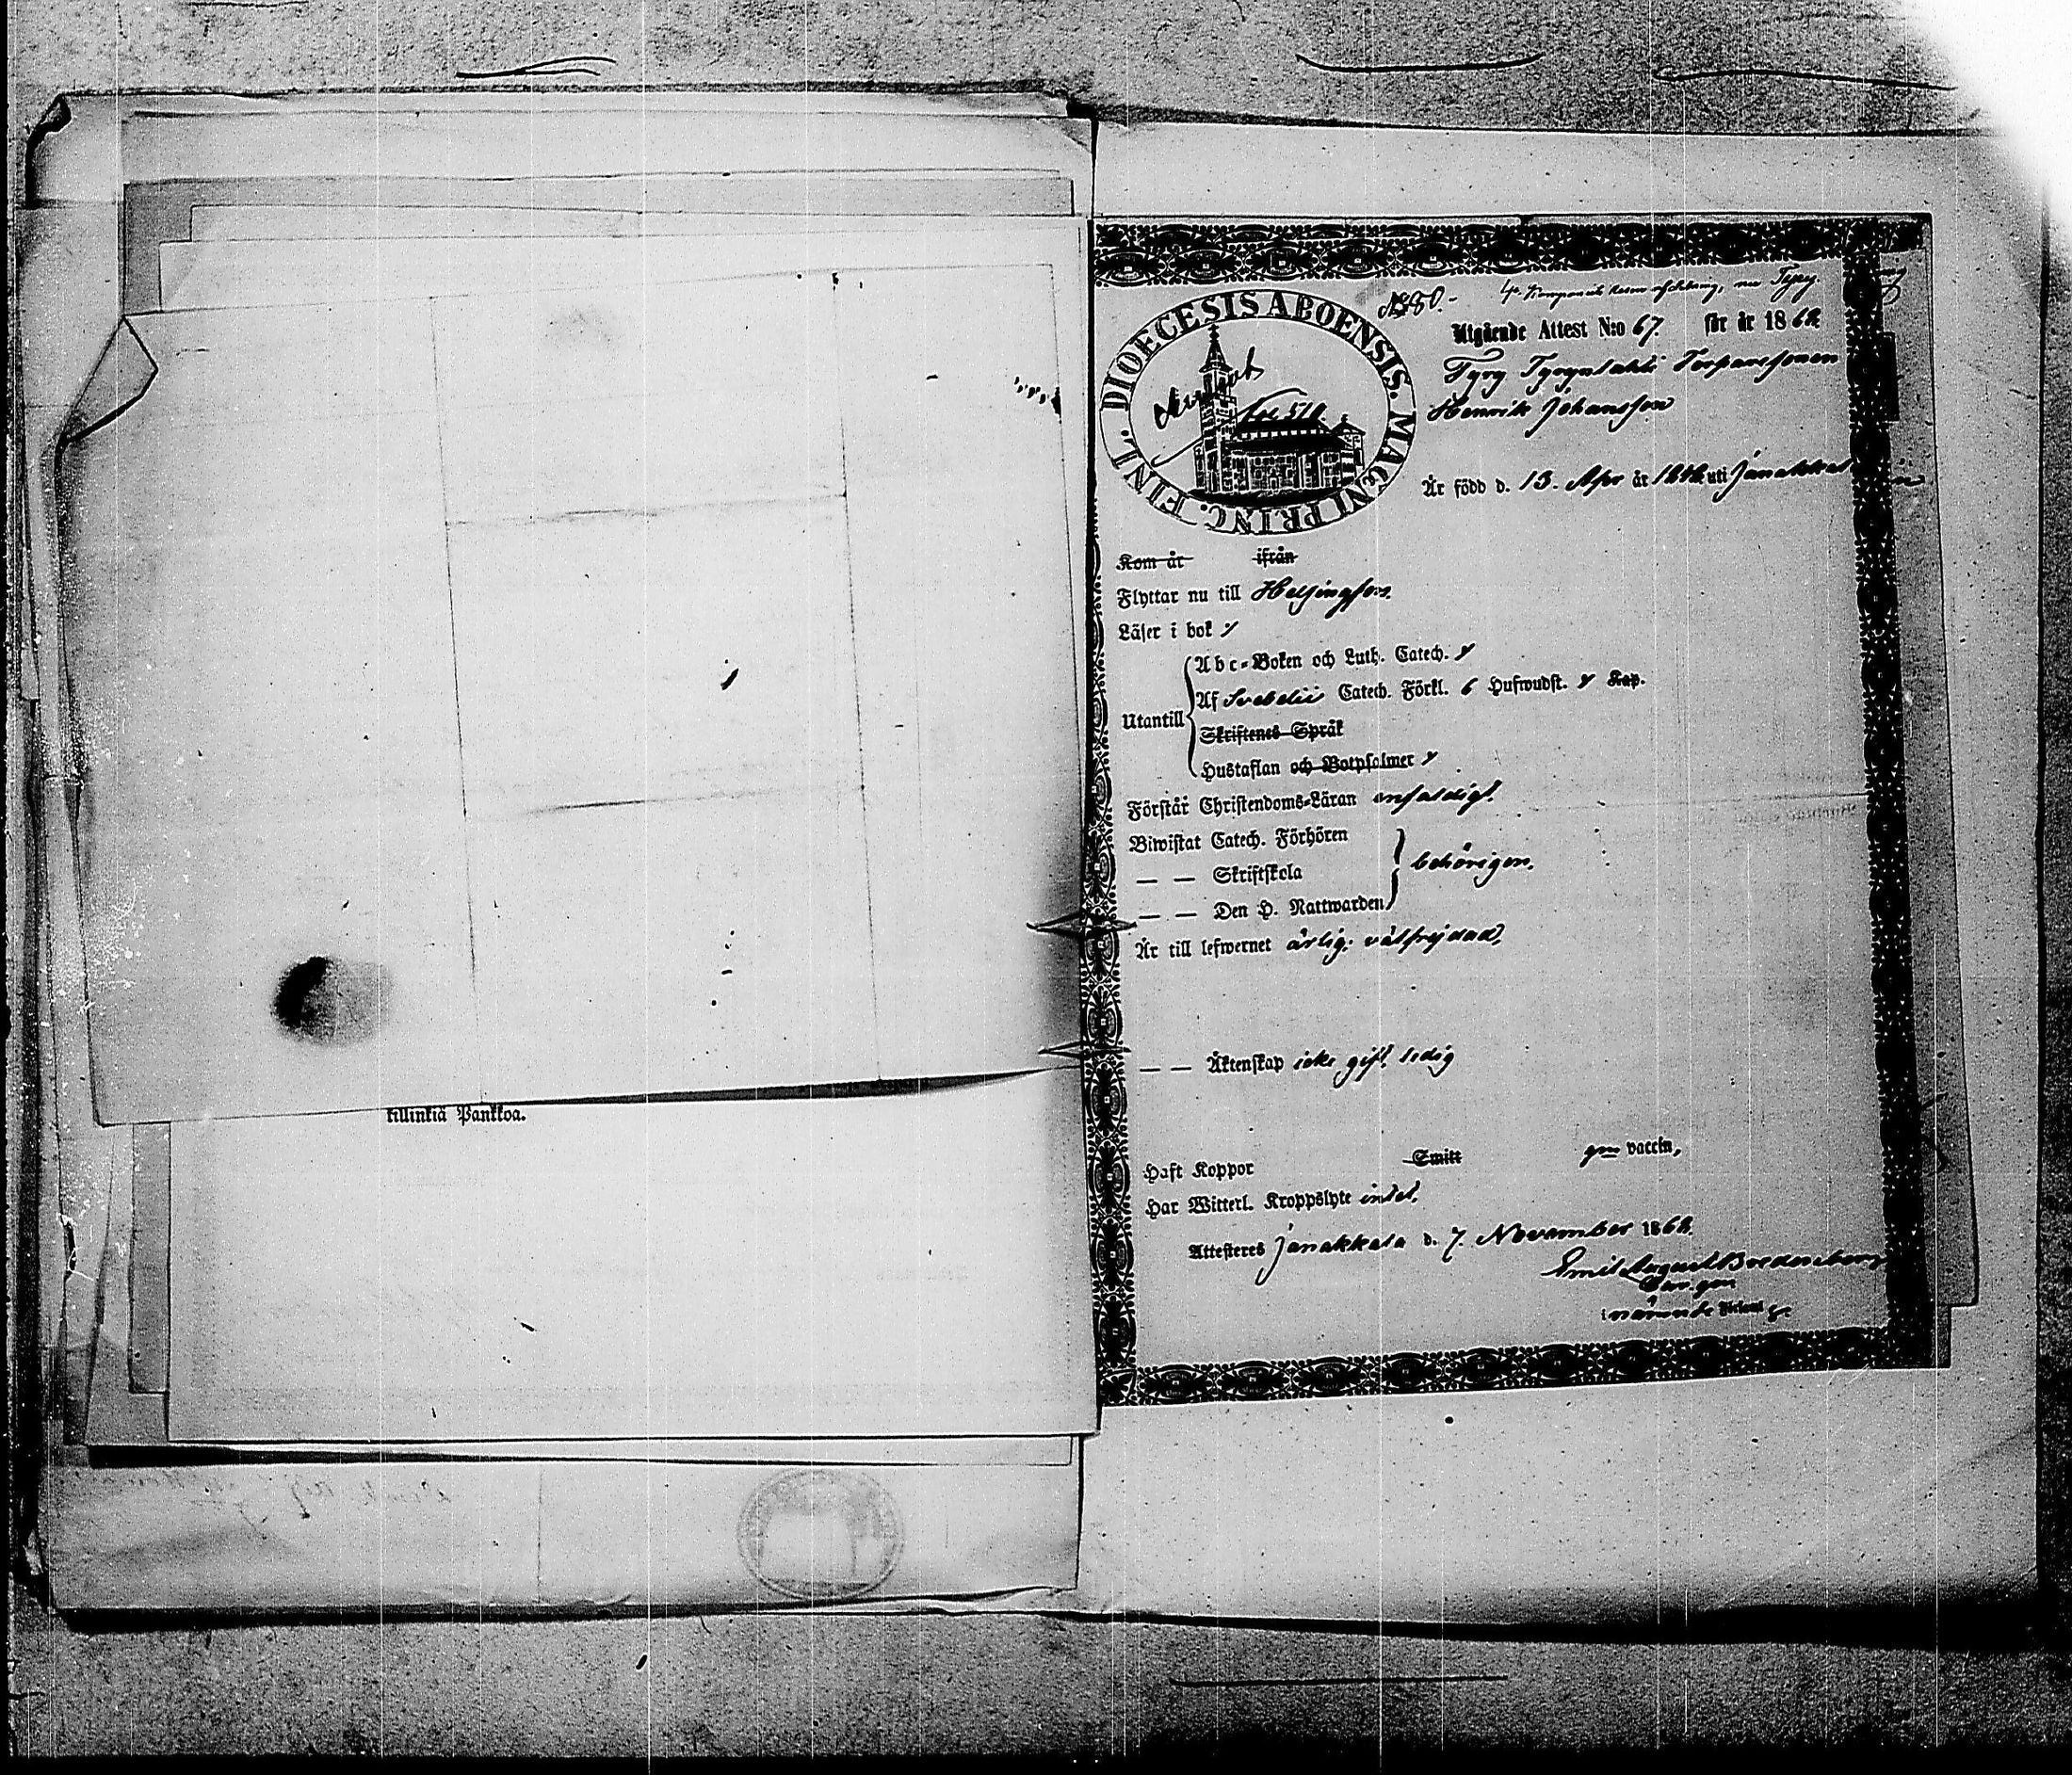 DIOECESIS ABOENSIS. MAGNI PRINC. FINL.
4. Kompanie
Utgående Attest N:o 67. för år 1862
Tyry Torparesonen
Henrik Johansson
Är född d. 13. Apr år uti Janakkala
Kom år ifrån
Flyttar nu till Helsingfors.
Läser i bok
Abc-Boken och Luth. Catech.
Utantill
Af Svebelii Catech. Förkl. 6 Hufwudst. Kap.
Skriftenes Språk
Hustaflan och Botpsalmer
Förstår Christendoms-Läran enfaldigt.
Biwistat Catech. Förhören
— — Skriftskola behörigen.
— — Den H. Nattwarden
Är till lefwernet ärlig, välfrejdad,
— — Äktenskap icke gift, ledig
Haft Koppor Smitt gm vaccin,
Har Witterl. Kroppslyte intet.
Attesteres Janakkala d. 7. November 1862.
Emil August Bredenberg
tillinkiä Pankkoa.